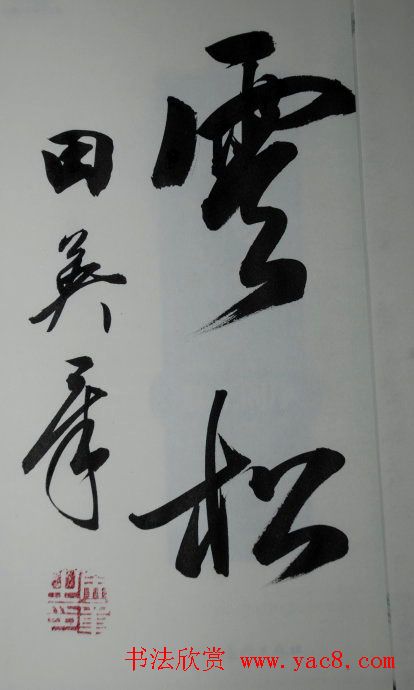 雲松
田英章
书法欣赏 www.yac8.com